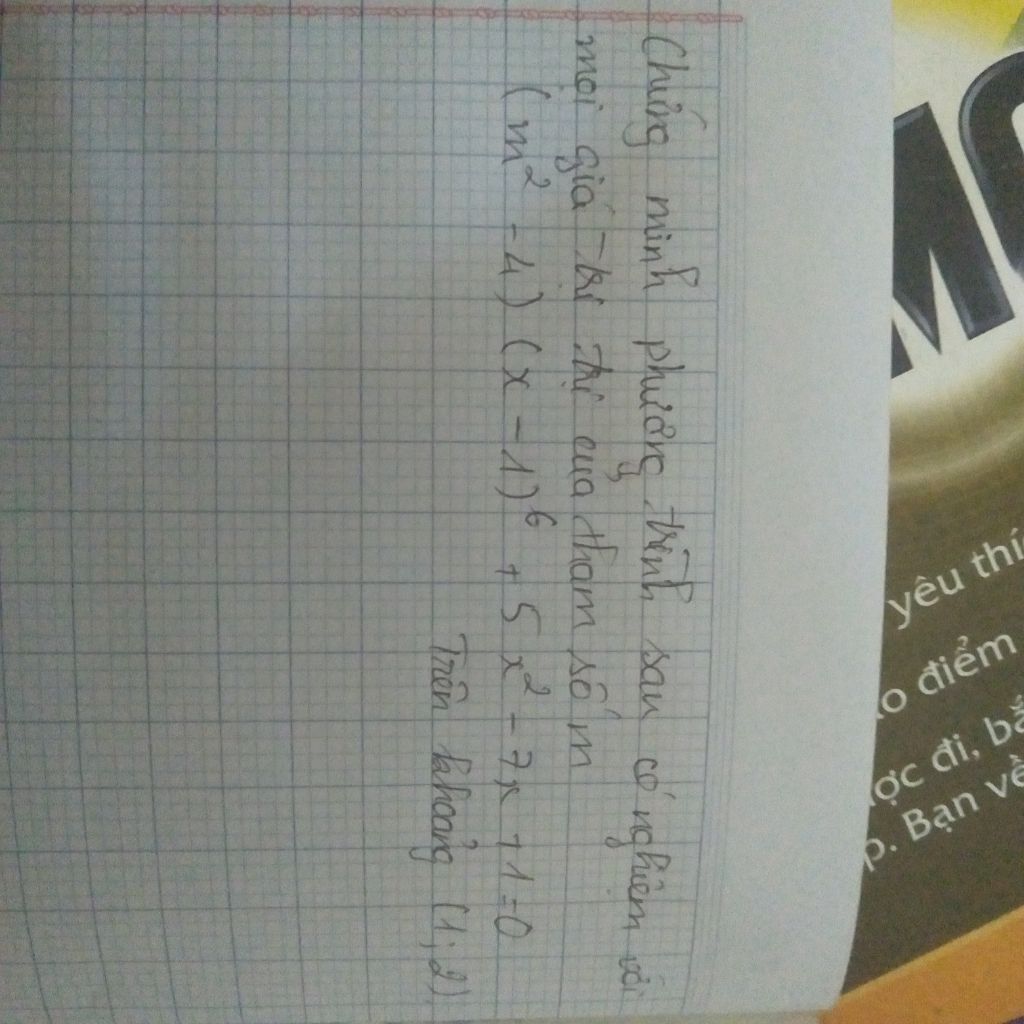 Chứng minh phương trình sau có nghiệm với
mọi giá trị trị của tham số m
(m² - 4) (x - 1)⁶ + 5x² - 7x + 1 = 0
Trên khoảng (1; 2)
MO
yêu thí
điểm
ợc đi, bắ
p. Bạn về